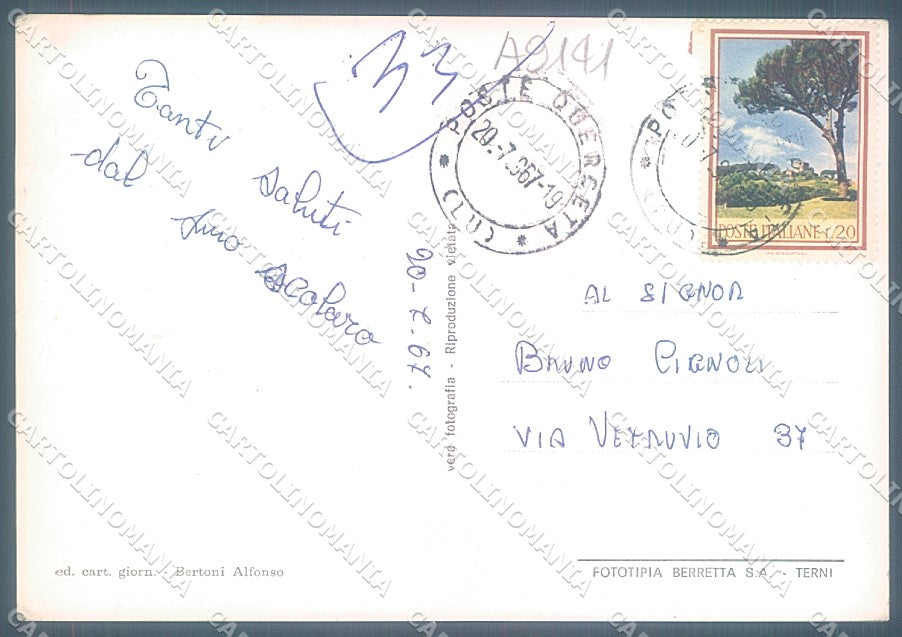 A9141
33
Tanti saluti
dal suo scolaro
20-7-67.
POSTE QUERCETA * (LU) *
20.-7.967-10
POSTE ITALIANE L.20
AL SIGNOR
BRUNO CIGNOLI
VIA VETRUVIO 37
vera fotografia - Riproduzione vietata
ed. cart. giorn. - Bertoni Alfonso
FOTOTIPIA BERRETTA S.A. - TERNI
CARTOLINOMANIA